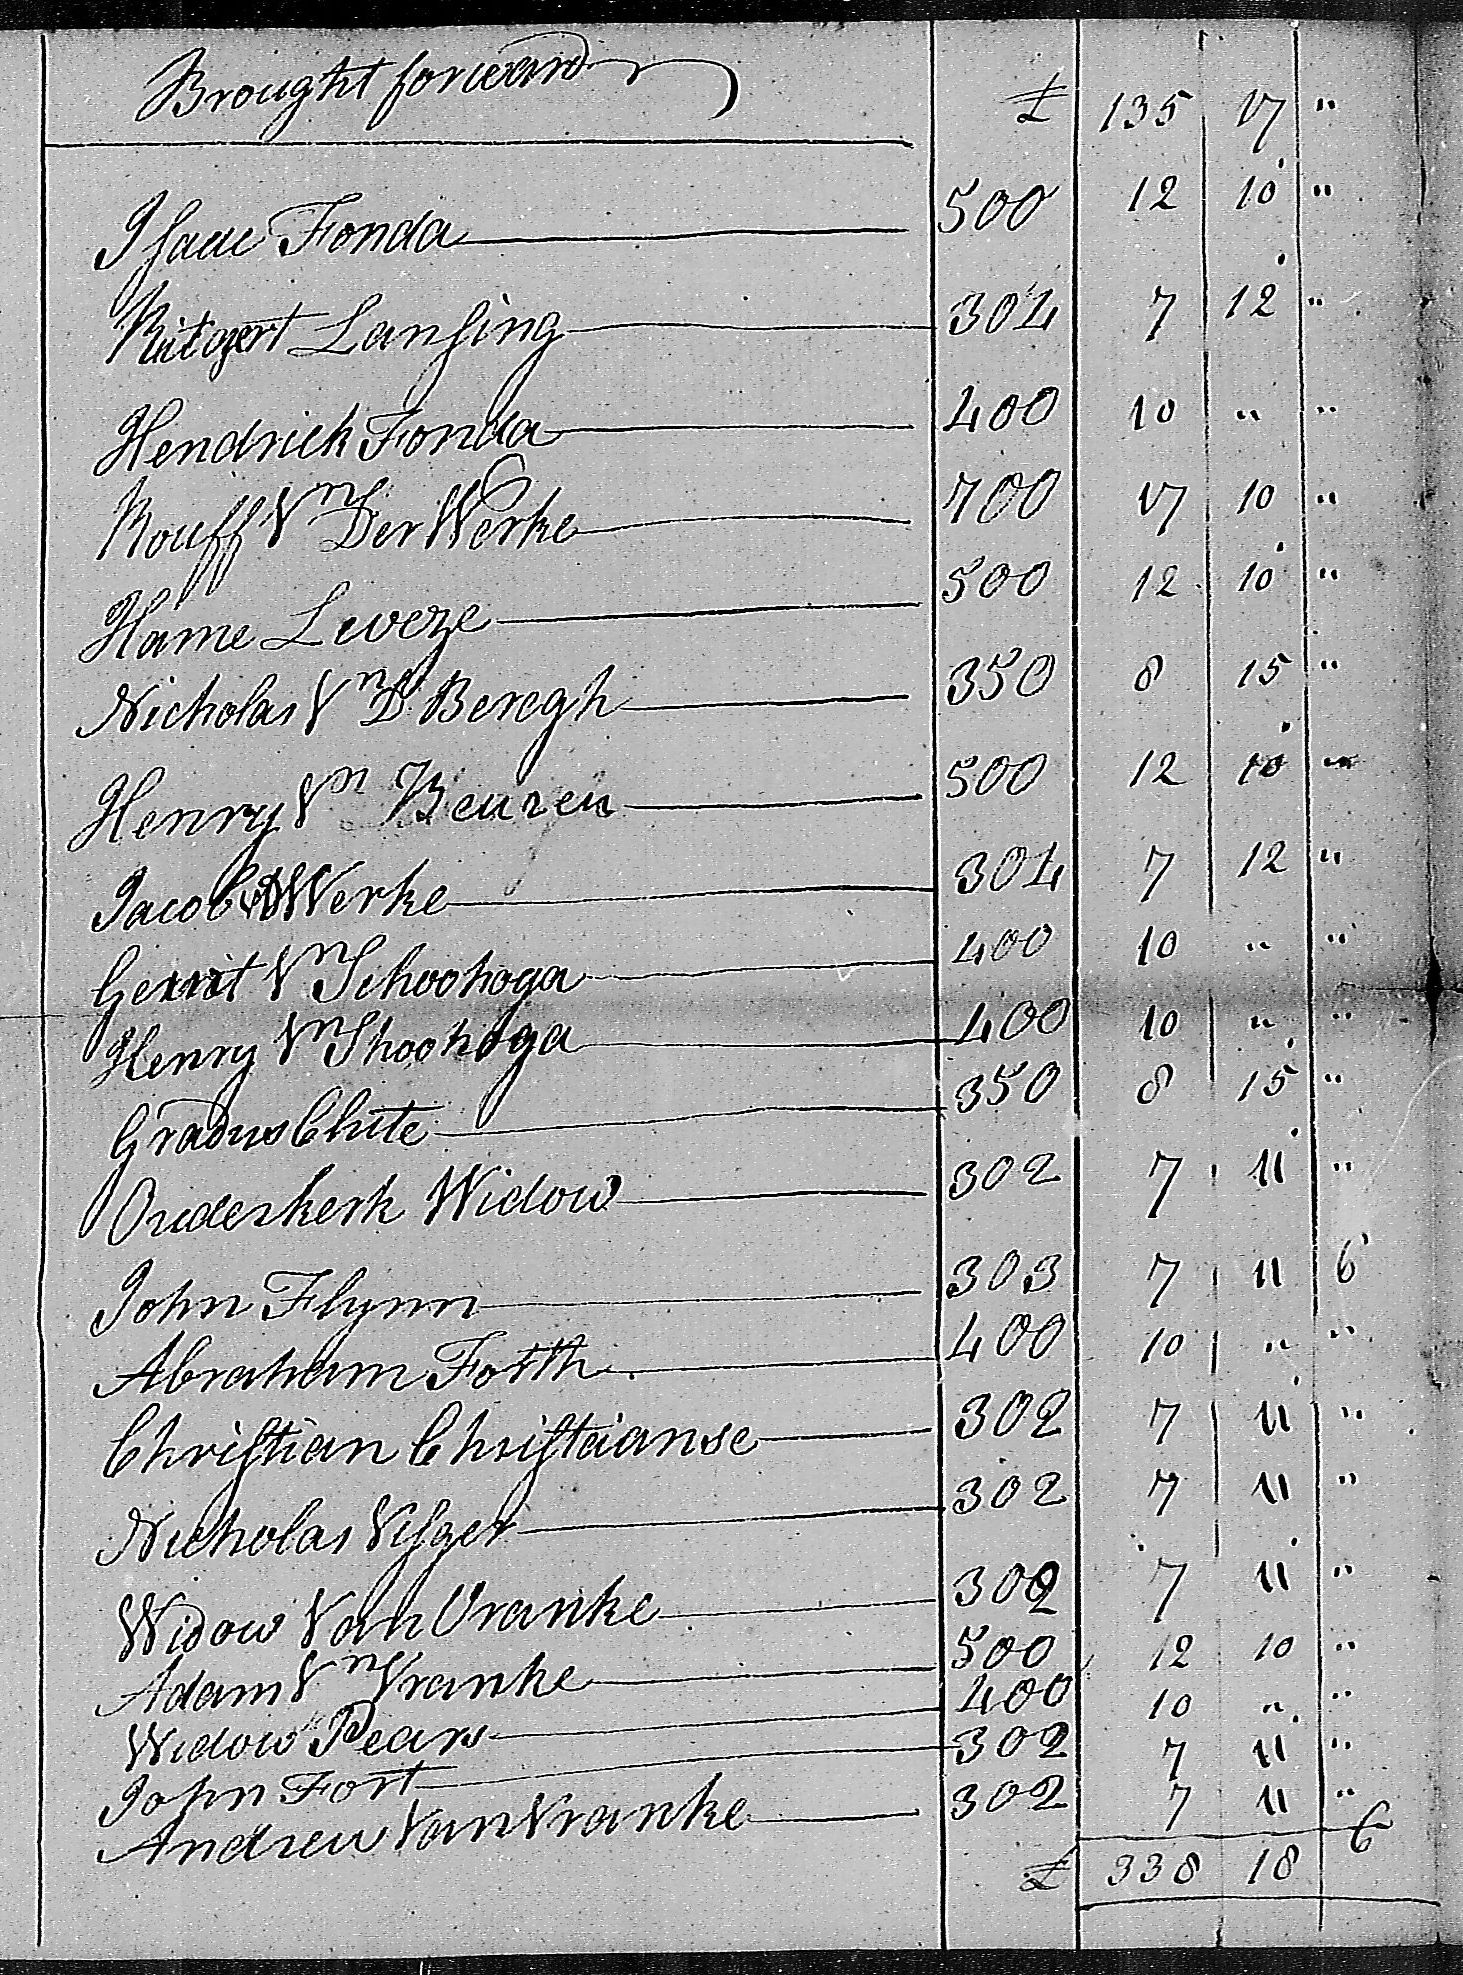 Brought forward £ 135 17 "
Isaac Fonda 500 12 10 "
Rutgert Lansing 304 7 12 "
Hendrick Fonda 400 10 " "
Rouff Vn Der Werke 700 17 10 "
Hame Leveze 500 12 10 "
Nicholas Vn D Beregh 350 8 15 "
Henry Vn Beuren 500 12 10 "
Jacob VD Werke 304 7 12 "
Gerrit Vn Schoohoga 400 10 " "
Henry Vn Shoohoga 400 10 " "
Gradus Chite 350 8 15 "
Ouderkerk Widow 302 7 11 "
John Flynn 303 7 11 6
Abraham Forth 400 10 " "
Christian Christaianse 302 7 11 "
Nicholas Visger 302 7 11 "
Widow Van Vranke 302 7 11 "
Adam Vn Vranke 500 12 10 "
Widow Pears 400 10 " "
John Fort 302 7 11 "
Andrew Van Vranke 302 7 11 "
£ 338 18 6